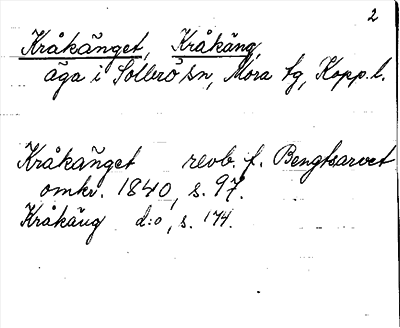 2
Kråkänget, Kråkäng,
äga i Sollerö sn, Mora tg, Kopp. l.
Kråkänget revb. f. Bengtsarvet
omkr. 1840, s. 97.
Kråkäng d:o, s. 174.